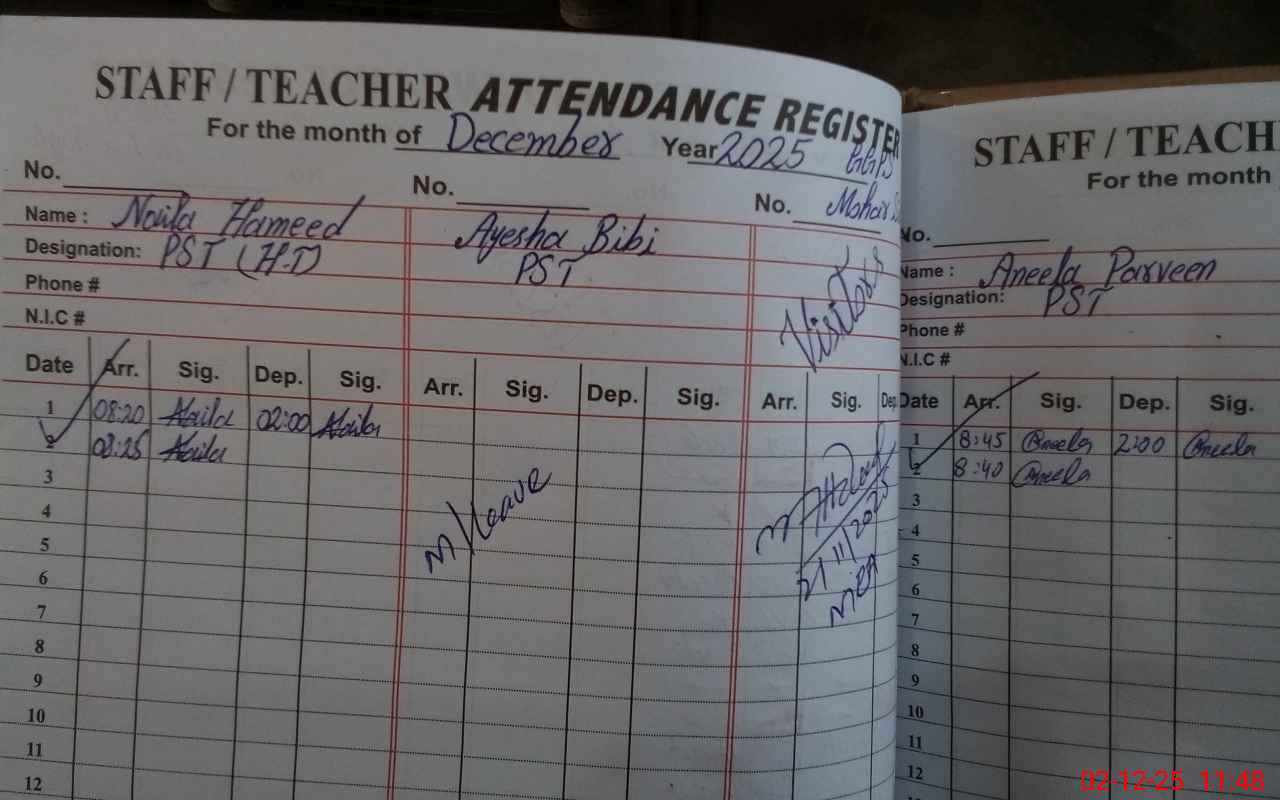 STAFF / TEACHER ATTENDANCE REGISTER
For the month of December Year 2025 GGPS
No. No. No. Mohar
Name : Naila Hameed Ayesha Bibi
Designation: PST (H.T) PST
Phone #
N.I.C #
Visitors
Date Arr. Sig. Dep. Sig. Arr. Sig. Dep. Sig. Arr. Sig. Dep.
1 08:20 Naila 02:00 Naila
2 08:25 Naila
3
4
5
6
7
8
9
10
11
12
M/Leave
MEA
STAFF / TEACH
For the month
No.
Name : Aneela Parveen
Designation: PST
Phone #
N.I.C #
Date Arr. Sig. Dep. Sig.
1 8:45 Aneela 2:00 Aneela
2 8:40 Aneela
3
4
5
6
7
8
9
10
11
12
02-12-25 11:48